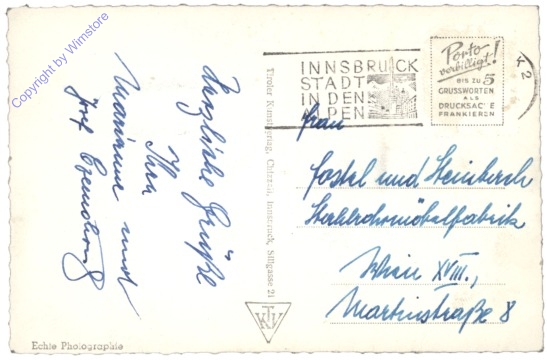 Copyright by Wimstore
Herzliche Grüße
Ihre
Marianne und
Josef
Tiroler Kunstverlag, Chizzali, Innsbruck, Sillgasse 21
INNSBRUCK
STADT
IN DEN
ALPEN
Porto
verbilligt!
BIS ZU 5
GRUSSWORTEN
ALS
DRUCKSACHE
FRANKIEREN
K 2
Frau
Jostel und Steinbech
Stahlrohrmöbelfabrik
Wien XVIII.,
Martinstraße 8
TKV
Echte Photographie